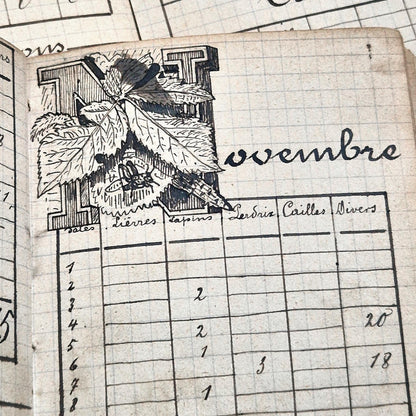 Novembre
Dates Lièvres Lapins Perdrix Cailles Divers
1
2
3 2
4 20
5 2
6 1 3 18
7
8 1